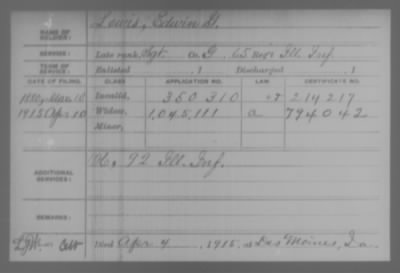 NAME OF SOLDIER: Lewis, Edwin D.
SERVICE: Late rank, Sgt. Co. G, 65 Reg't Ill. Inf.
TERM OF SERVICE: Enlisted , 1 Discharged , 1
DATE OF FILING. CLASS. APPLICATION NO. LAW. CERTIFICATE NO.
1880, Mar 10 Invalid, 350 310 214 217
1915 Apr 10 Widow, 1,045,111 a 794042
Minor,
ADDITIONAL SERVICES: 92 Ill. Inf.
REMARKS:
Died Apr 4, 1915, at Des Moines, Ia.